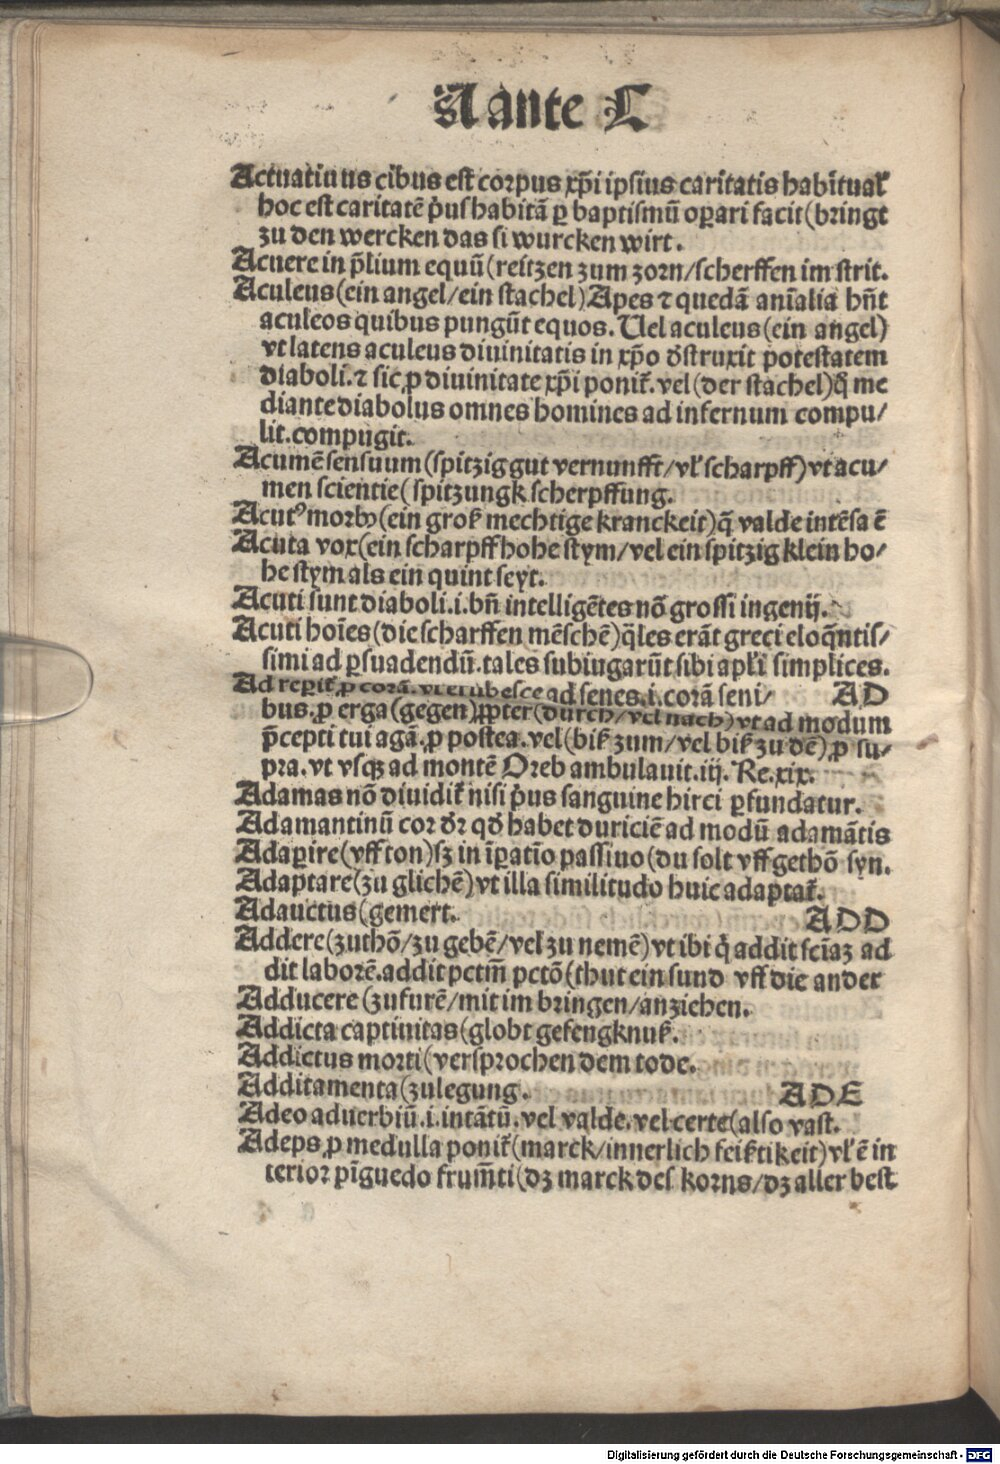 A ante C
Actuatiuus cibus est corpus xp̄i ipsius caritatis habitual̕
hoc est caritatē p̓us habitā ꝑ baptismū oꝑari facit (bringt
zu den wercken das si wurcken wirt.
Acuere in p̄lium equū (reitzen zum zorn/scherffen im strit.
Aculeus (ein angel/ein stachel) Apes ⁊ quedā aīalia hn̄t
aculeos quibus pungūt equos. Uel aculeus (ein angel)
vt latens aculeus diuinitatis in xp̄o dꝰstruxit potestatem
diaboli. ⁊ sic ꝓ diuinitate xp̄i ponit̕. vel (der stachel) q̊ me
diante diabolus omnes homines ad infernum compu/
lit. compugit.
Acumē sensuum (spitzig gut vernunfft/vl̕ scharpff) vt acu/
men scientie (spitzung ꝛ scherpffung.
Acutꝰ morbꝰ (ein groß mechtige kranckeit) q̄ valde intēsa ē
Acuta vox (ein scharpff hohe stym/vel ein spitzig klein ho/
he stym als ein quint seyt.
Acuti sunt diaboli .i. bn̄ intelligētes nō grossi ingenij.
Acuti hoīes (die scharffen mēschē) q̄les erāt greci eloq̄ntis/
simi ad ꝑsuadendū. tales subiugarūt sibi apl̕i simplices.
Ad reꝑit̕ ꝓ corā. vt erubesce ad senes .i. corā seni/ AD
bus. ꝓ erga (gegen) ꝓpter (durch/vel nach) vt ad modum
p̄cepti tui agā. ꝓ postea. vel (biß zum/vel biß zu dē) ꝓ su/
pra. vt vsqꝫ ad montē Oreb ambulauit. iij. Re. xix.
Adamas nō diuidit̕ nisi p̓us sanguine hirci ꝑfundatur.
Adamantinū cor dꝛ qd̕ habet duriciē ad modū adamātis
Adaꝑire (vff ton) sꝫ in īꝑatio passiuo (du solt vff gethō syn.
Adaptare (zu glichē) vt illa similitudo huic adaptat̕.
Adauctus (gemert. ADD
Addere (zuthō/zu gebē/vel zu nemē) vt ibi q̓ addit sciaꝫ ad
dit laborē. addit pctm̄ pctō (thut ein sund vff die ander
Adducere (zufurē/mit im bringen/anziehen.
Addicta captiuitas (globt gefengknuß.
Addictus morti (versprochen dem tode.
Additamenta (zulegung. ADE
Adeo aduerbiū .i. intātū. vel valde. vel certe (also vast.
Adeps ꝓ medulla ponit̕ (marck/innerlich feißtikeit) vl̕ ē in
terior pīguedo frumm̄ti (dꝫ marck des korns/dꝫ aller best
Digitalisierung gefördert durch die Deutsche Forschungsgemeinschaft - DFG